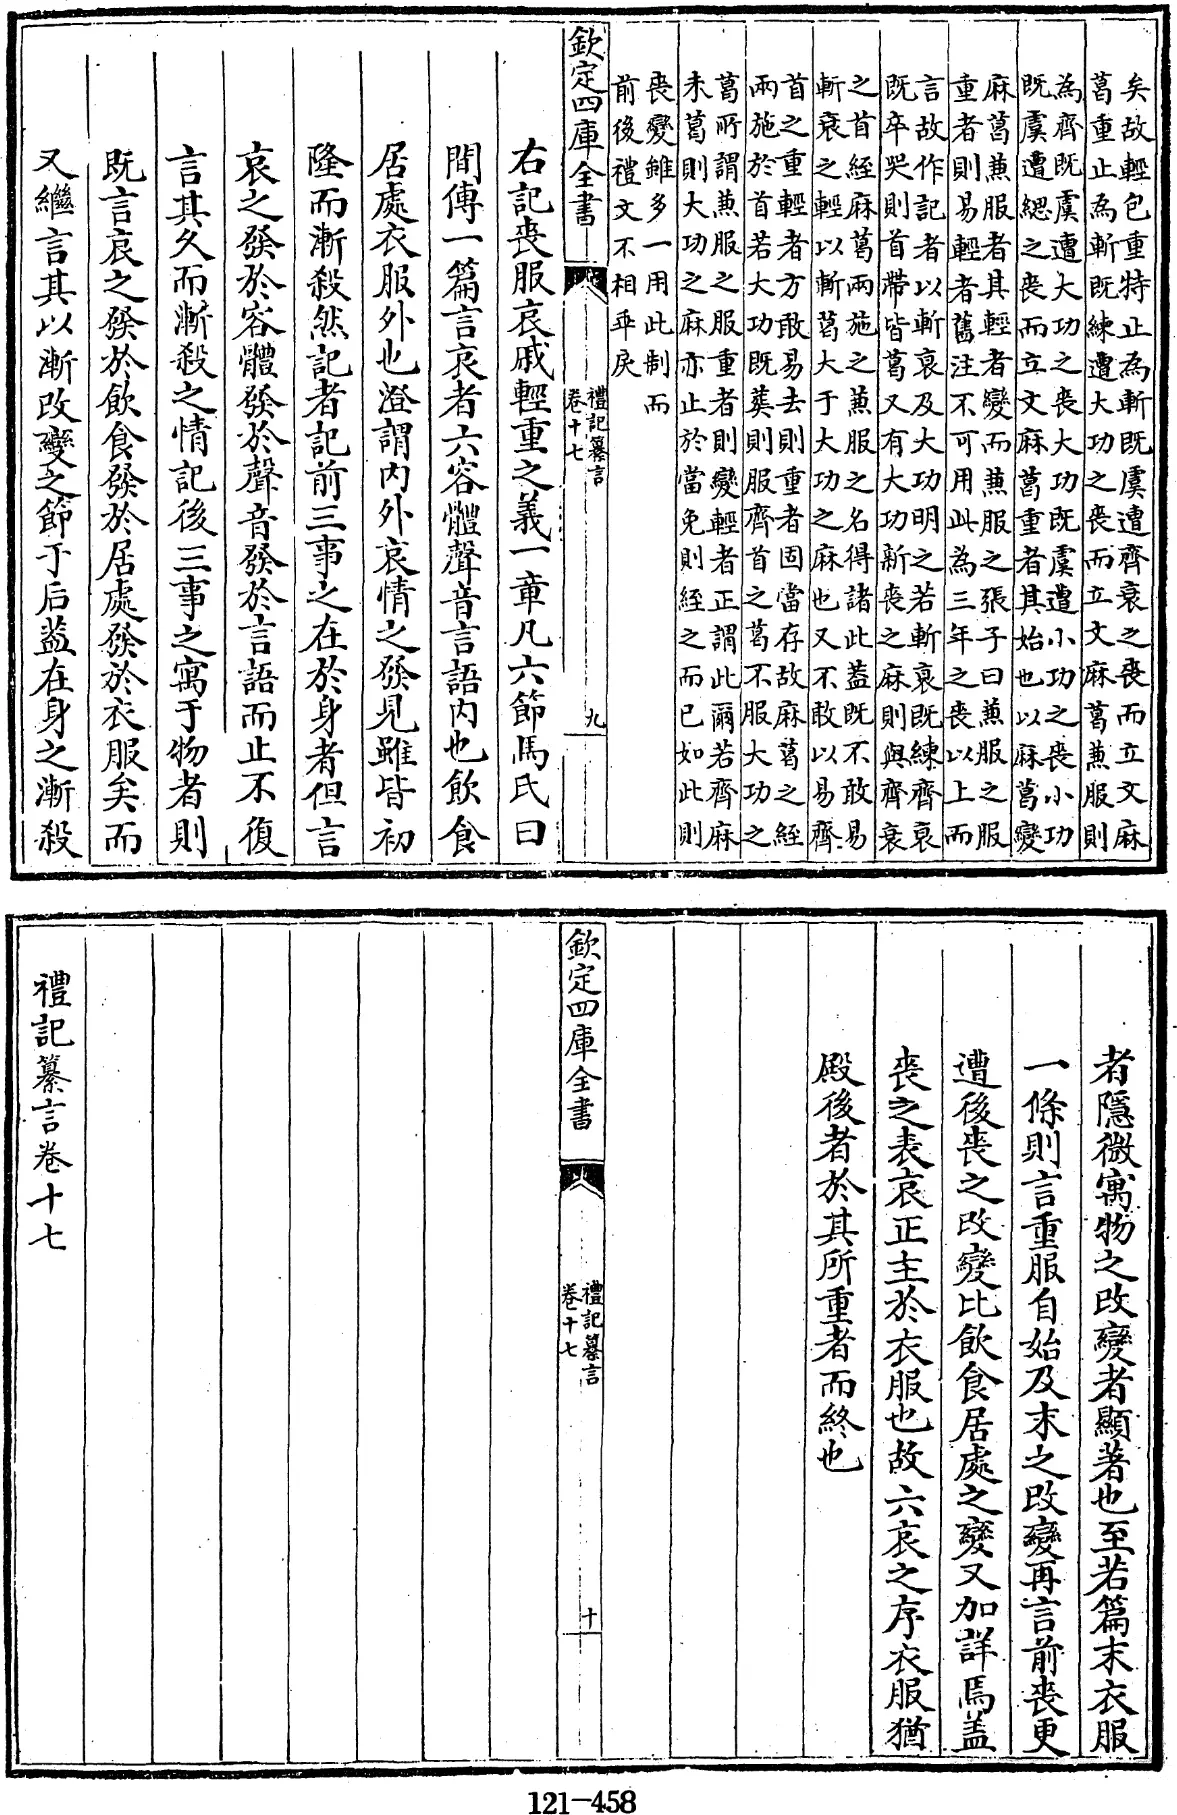 矣故輕包重特止為斬既虞遭齊衰之喪而立文麻
葛重止為斬既練遭大功之喪而立文麻葛兼服則
為齊既虞遭大功之喪大功既虞遭小功之喪小功
既虞遭緦之喪而立文麻葛重者其始也以麻葛變
麻葛兼服者其輕者變而兼服之張子曰兼服之服
重者則易輕者舊注不可用此為三年之喪以上而
言故作記者以斬衰及大功明之若斬衰既練齊衰
既卒哭則首帶皆葛又有大功新喪之麻則與齊衰
之首絰麻葛兩施之兼服之名得諸此蓋既不敢易
斬衰之輕以斬葛大于大功之麻也又不敢以易齊
首之重輕者方敢易去則重者固當存故麻葛之絰
兩施於首若大功既葬則服齊首之葛不服大功之
葛所謂兼服之服重者則變輕者正謂此爾若齊麻
未葛則大功之麻亦止於當免則絰之而已如此則
喪變雖多一用此制而
前後禮文不相乖戾
欽定四庫全書
禮記纂言
卷十七
九
右記喪服哀戚輕重之義一章凡六節馬氏曰
間傳一篇言哀者六容體聲音言語內也飲食
居處衣服外也澄謂內外哀情之發見雖皆初
隆而漸殺然記者記前三事之在於身者但言
哀之發於容體發於聲音發於言語而止不復
言其久而漸殺之情記後三事之寓于物者則
既言哀之發於飲食發於居處發於衣服矣而
又繼言其以漸改變之節于后蓋在身之漸殺
者隱微寓物之改變者顯著也至若篇末衣服
一條則言重服自始及末之改變再言前喪更
遭後喪之改變比飲食居處之變又加詳焉蓋
喪之表哀正主於衣服也故六哀之序衣服猶
殿後者於其所重者而終也
欽定四庫全書
禮記纂言
卷十七
十
禮記纂言卷十七
121-458